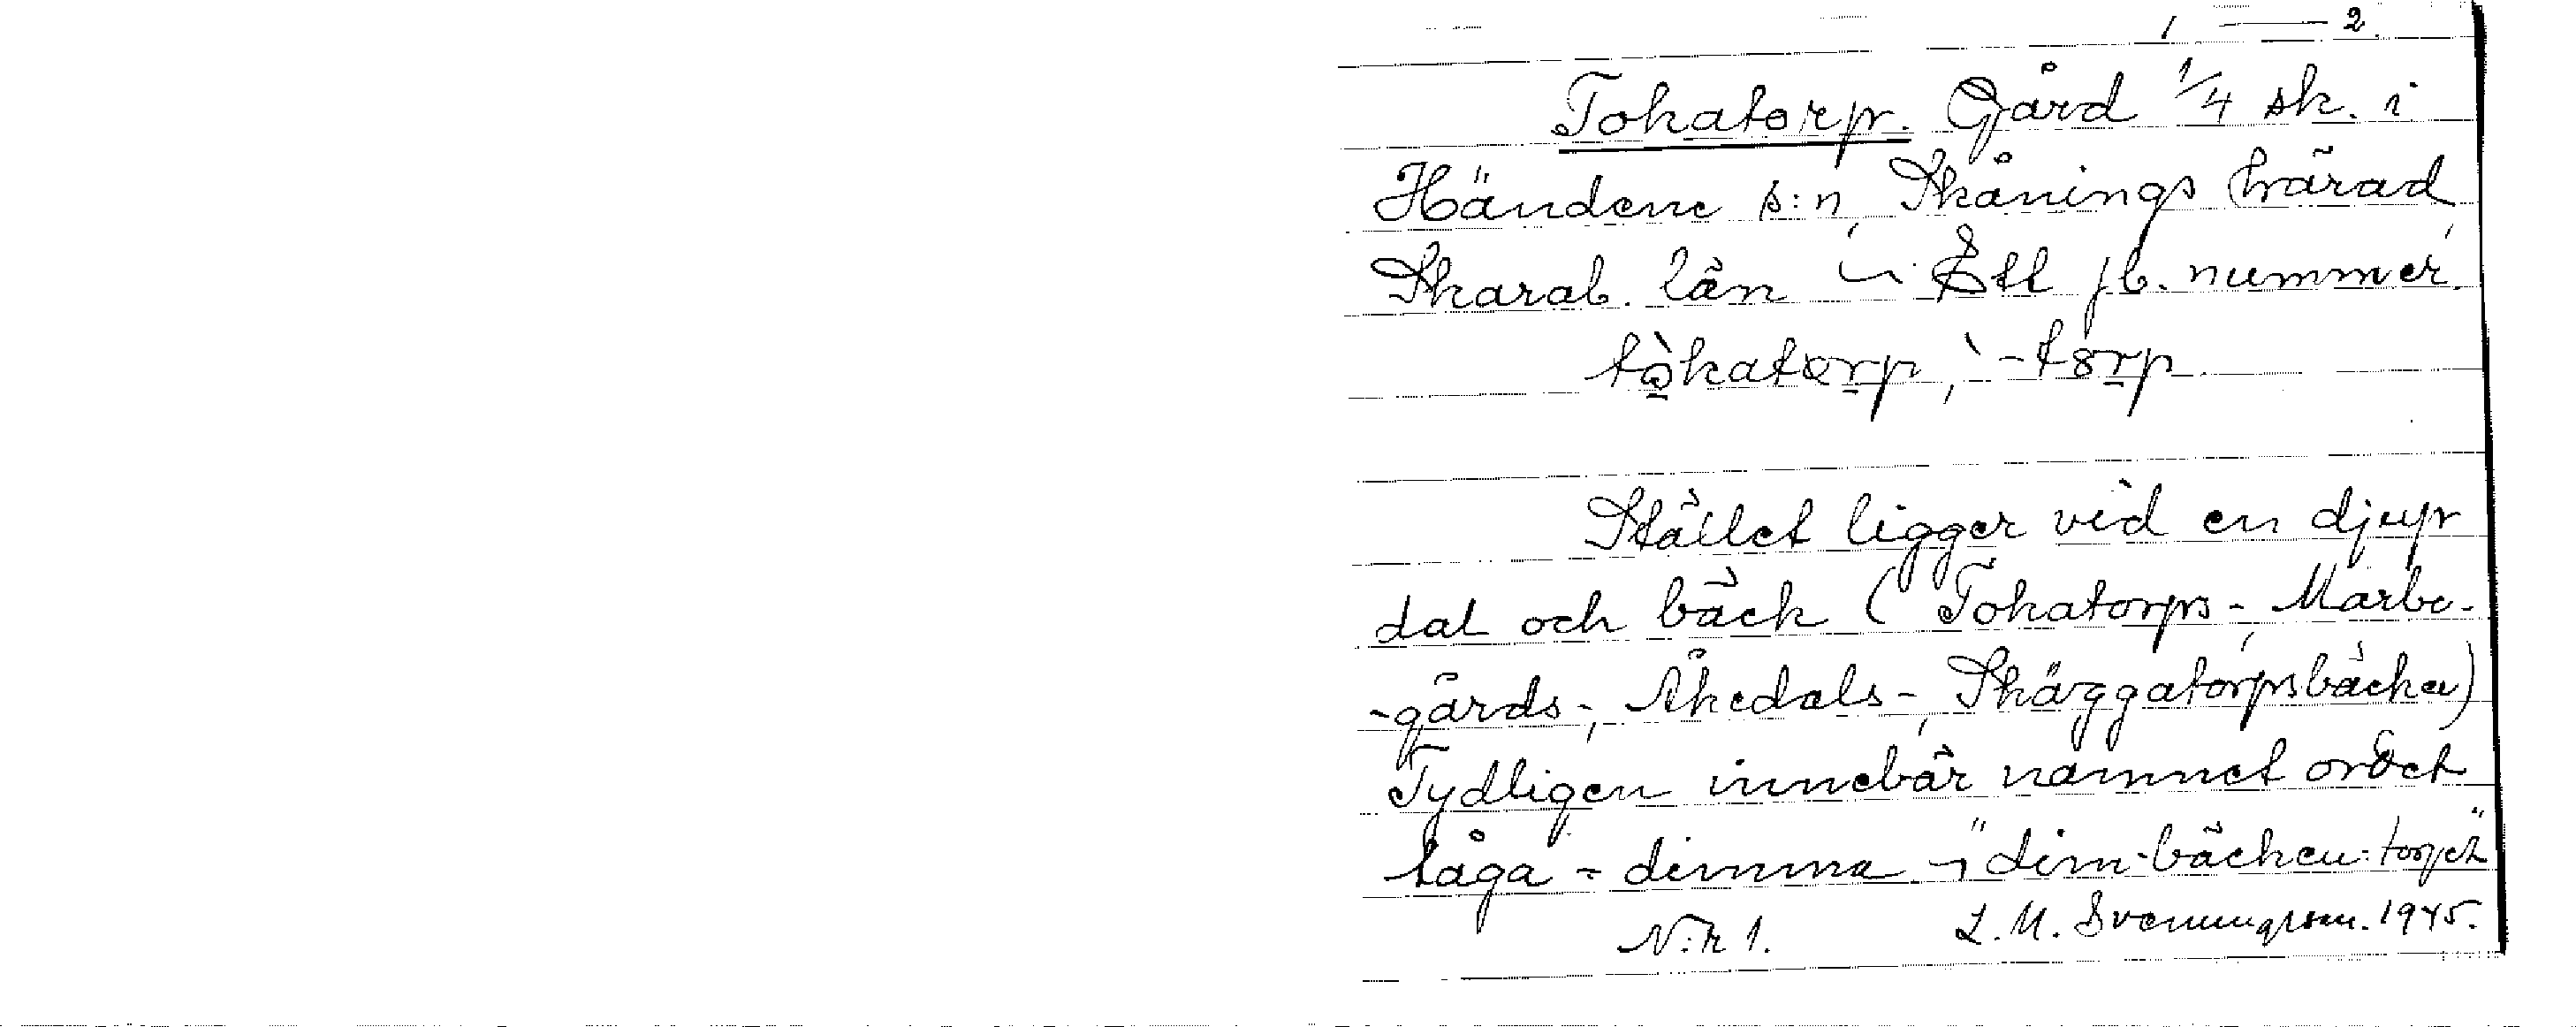 1 — 2.
Tokatorp. Gård 1/4 sk. i
Händene s:n, Skånings härad,
Skarab. län ~ Ett jb. nummer.
tòkatorp, ̀-torp
Stället ligger vid en djup
dal och bäck (Tokatorps-, Marbo-
-gårds-, Åkedals-, Skäggatorpsbäcken)
Tydligen innebär namnet ordet
tåga - dimma ~ "dim-bäcken-torpet"
N:r 1. L. M. Svenungsson. 1945.